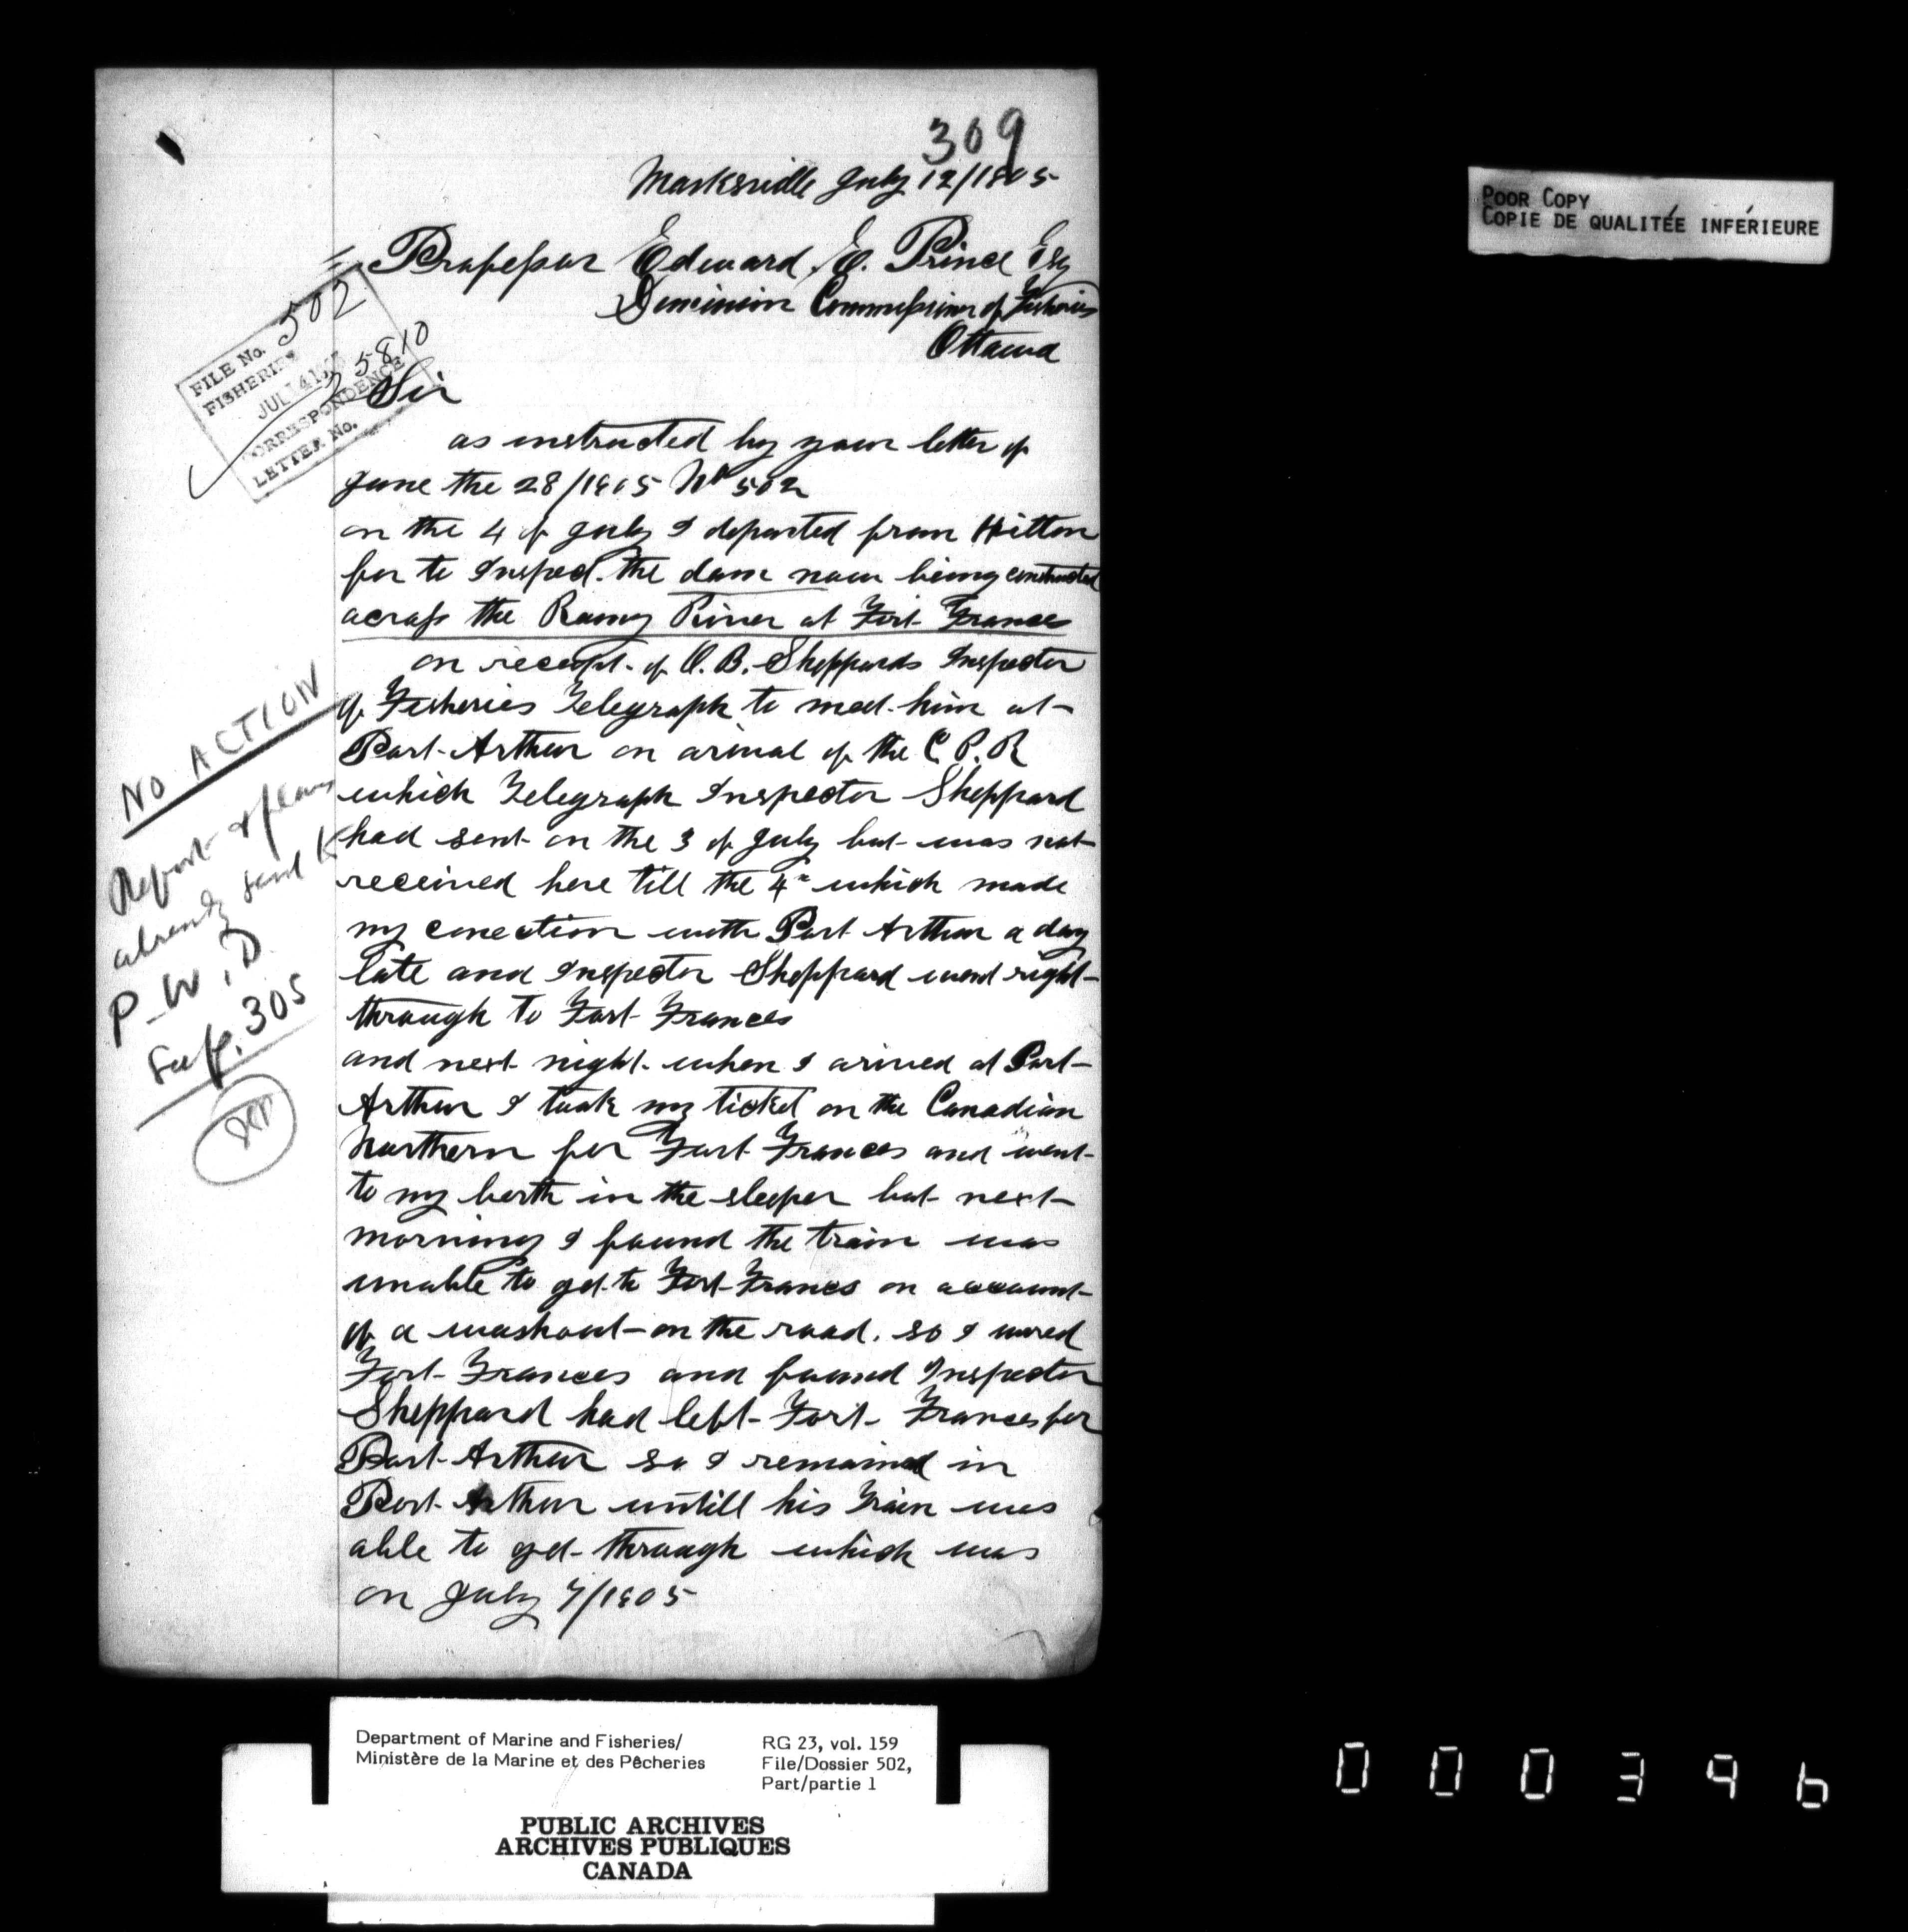 309
Marksville July 12/1905
Professor Edward E. Prince Esq
Dominion Commissioner of Fisheries
Ottawa
FILE No. 502
FISHERIES
JUL 14 1905
25810
CORRESPONDENCE
LETTER No.
Sir
as instructed by your letter of
June the 28/1905 No 502
on the 4 of July I departed from Hilton
for to Inspect the dam now being constructed
across the Rainy River at Fort Frances
on receipt of O. B. Sheppards Inspector
of Fisheries Telegraph to meet him at
Port Arthur on arival of the C. P. R
which Telegraph Inspector Sheppard
had sent on the 3 of July but was not
received here till the 4th which made
my conection with Port Arthur a day
late and Inspector Sheppard went right
through to Fort Frances
and next night when I arived at Port
Arthur I took my ticket on the Canadian
Northern for Fort Frances and went
to my berth in the sleeper but next
morning I found the train was
unable to get to Fort Frances on account
of a washout on the road. so I wired
Fort Frances and found Inspector
Sheppard had left Fort Frances for
Port Arthur so I remained in
Port Arthur untill his train was
able to get through which was
on July 7/1905
NO ACTION
Report & plans
already sent to
P.W.D.
See p. 305
POOR COPY
COPIE DE QUALITÉE INFÉRIEURE
Department of Marine and Fisheries/
Ministère de la Marine et des Pêcheries
RG 23, vol. 159
File/Dossier 502,
Part/partie 1
PUBLIC ARCHIVES
ARCHIVES PUBLIQUES
CANADA
000396